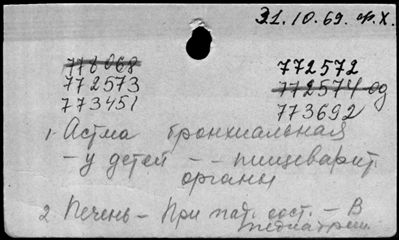 31.10.69. Ф.Х.
778068 772572
772573 772574 од
773451 773692
1 Астма бронхиальная
- у детей - - пищеварит.
органы
2 Печень - При пат. сост. - В
педиатрии